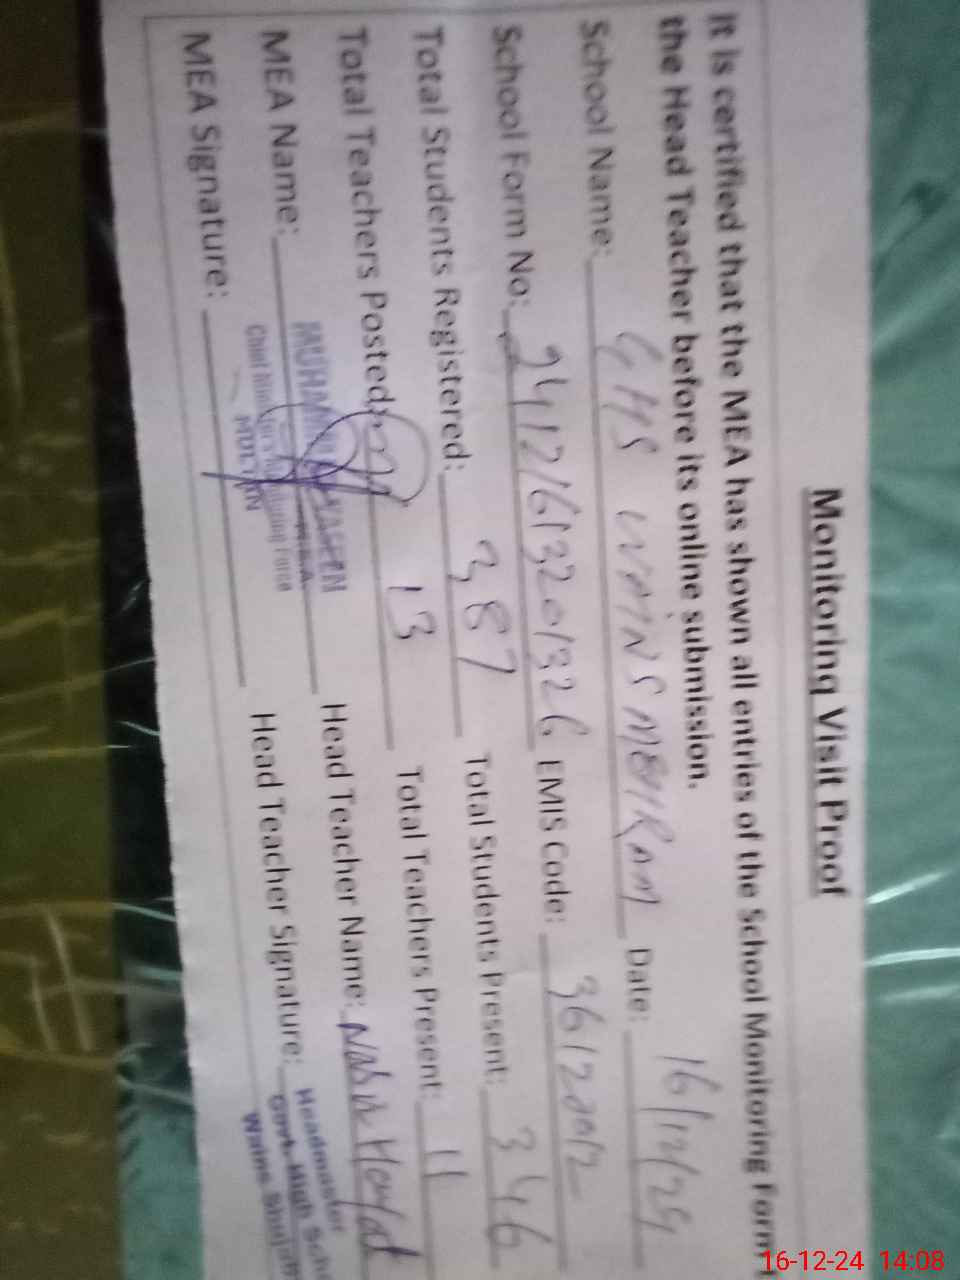 Monitoring Visit Proof
It is certified that the MEA has shown all entries of the School Monitoring Form
the Head Teacher before its online submission.
School Name: GHS WAINS MEHRAM Date: 16/12/24
School Form No: 24121613201326 EMIS Code: 36120012
Total Students Registered: 387 Total Students Present: 346
Total Teachers Posted: 13 Total Teachers Present: 11
MEA Name: MUHAMMAD YASEEN Head Teacher Name:
Chief Minister's Monitoring Force
MULTAN
MEA Signature: Head Teacher Signature: Headmaster
Govt. High
Wains
16-12-24 14:08